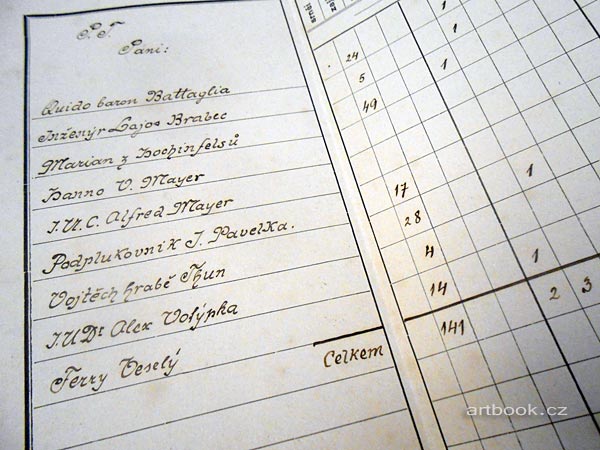 P. T.
Páni:
Quido baron Battaglia
Inženýr Lajos Brabec
Marian z Hochinfelsů
Hanno V. Mayer
J.U.C. Alfred Mayer
Podplukovník J. Pavelka.
Vojtěch hrabě Thun
J.UDr Alex Volýpka
Ferry Veselý
Celkem
srnčí
24
5
49
17
28
4
14
141
1
1
1
1
1
2
3
artbook.cz